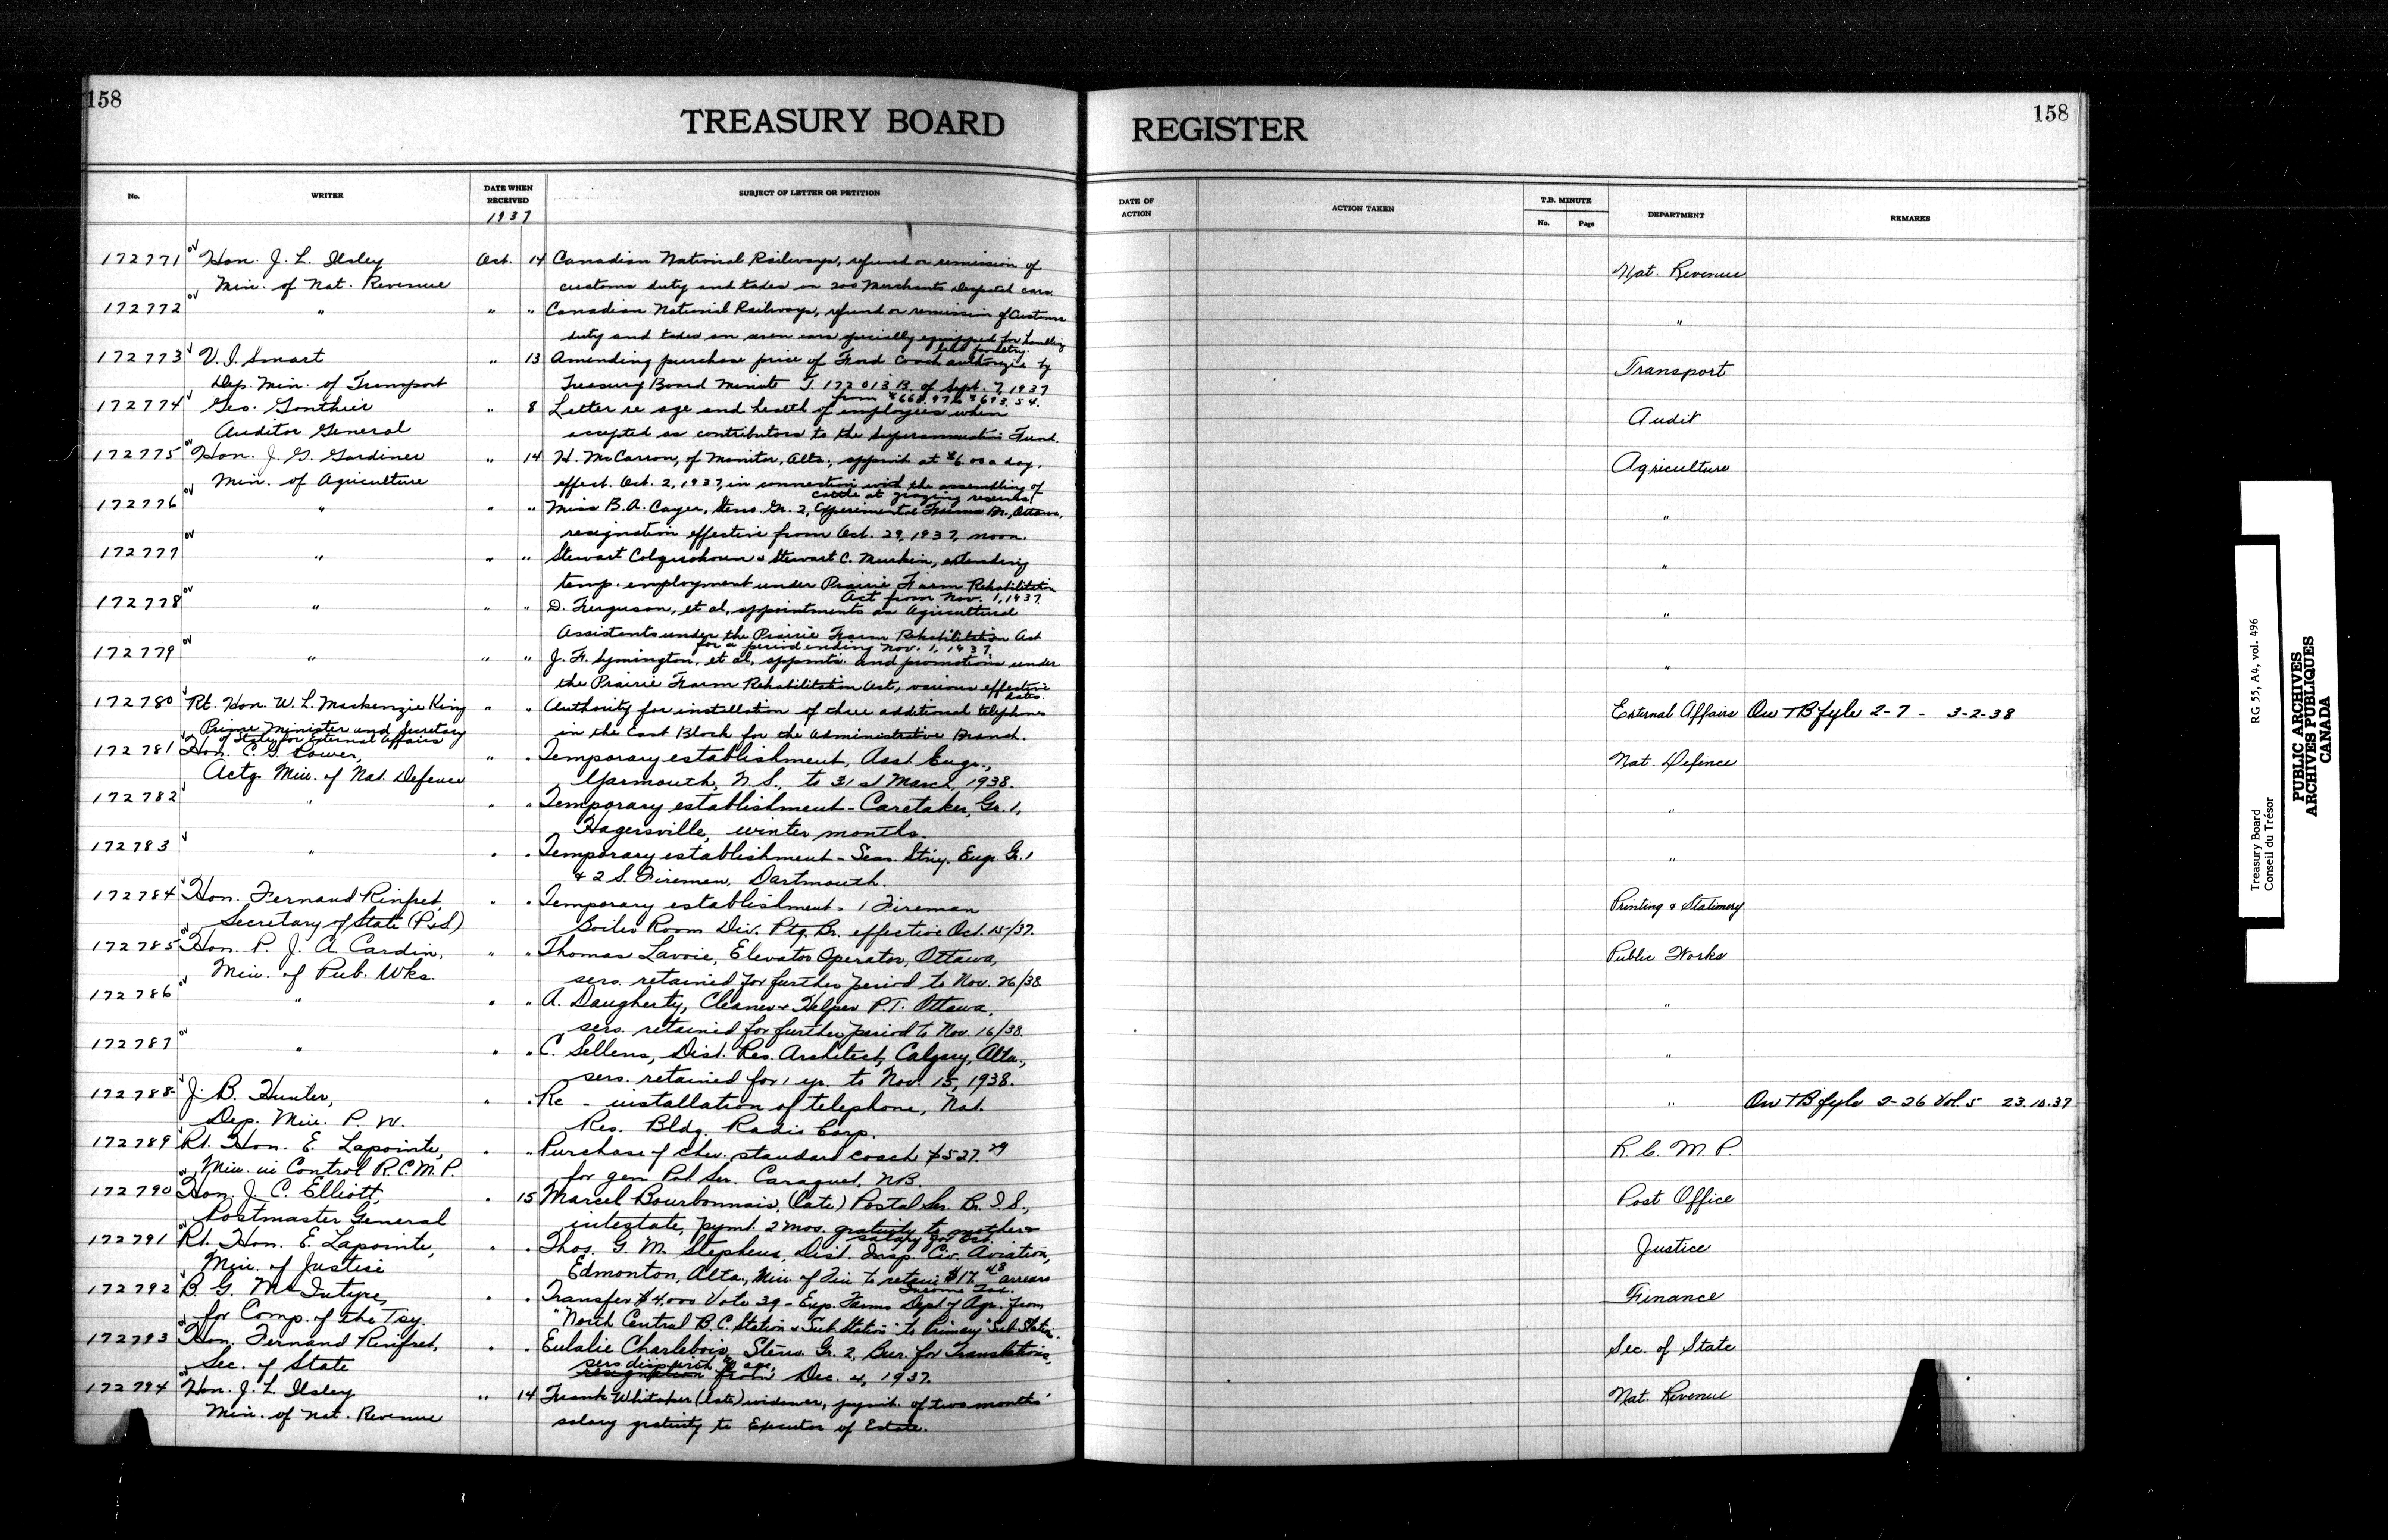 158
TREASURY BOARD REGISTER
158
No. WRITER DATE WHEN RECEIVED SUBJECT OF LETTER OR PETITION DATE OF ACTION ACTION TAKEN T.B. MINUTE No. Page DEPARTMENT REMARKS
1937
172771 Hon. J. L. Ilsley Oct. 14 Canadian National Railways, refund or remission of Nat. Revenue
Min. of Nat. Revenue customs duty and taxes on 200 Merchants Despatch cars.
172772 " " " Canadian National Railways, refund or remission of Customs "
duty and taxes on seven cars specially equipped for handling
live poultry.
172773 V. I. Smart " 13 Amending purchase price of Ford Coach authorized by Transport
Dep. Min. of Transport Treasury Board Minute T. 172013 B. of Sept. 7, 1937
from $668.97 to $693.54.
172774 Geo. Gonthier " 8 Letter re age and health of employees when Audit
Auditor General accepted as contributors to the Superannuation Fund.
172775 Hon. J. G. Gardiner " 14 H. McCarron, of Monitor, Alta., appmt at $6.00 a day, Agriculture
Min. of Agriculture effect. Oct. 2, 1937, in connection with the assembling of
cattle at grazing reserves
172776 " " " Miss B. A. Cayer, Steno. Gr. 2, Experimental Farms Br., Ottawa, "
resignation effective from Oct. 29, 1937, noon.
172777 " " " Stewart Colquohoun & Stewart C. Murkin, extending "
temp. employment under Prairie Farm Rehabilitation
Act from Nov. 1, 1937.
172778 " " " D. Ferguson, et al, appointments as Agricultural "
Assistants under the Prairie Farm Rehabilitation Act
for a period ending Nov. 1, 1937.
172779 " " " J. F. Symington, et al, appmts. and promotions under "
the Prairie Farm Rehabilitation Act, various effective
dates.
172780 Rt. Hon. W. L. Mackenzie King " " Authority for installation of three additional telephones External Affairs On TB fyle 2-7 - 3-2-38
Prime Minister and Secretary in the East Block for the Administrative Branch.
of State for External Affairs
172781 Hon. C. G. Power, " " Temporary establishment, Asst. Engr., Nat. Defence
Actg. Min. of Nat. Defence Yarmouth, N.S., to 31st March, 1938.
172782 " " " Temporary establishment - Caretaker, Gr. 1, "
Hagersville, winter months.
172783 " " " Temporary establishment - Seas. Stny. Engr. Gr. 1 "
& 2 S. Firemen, Dartmouth.
172784 Hon. Fernand Rinfret, " " Temporary establishment - 1 Fireman Printing & Stationery
Secretary of State (P&S) Boiler Room Div. Ptg. Br. effective Oct. 15/37.
172785 Hon. P. J. A. Cardin, " " Thomas Lavoie, Elevator Operator, Ottawa, Public Works
Min. of Pub. Wks. sers. retained for further period to Nov. 26/38
172786 " " " A. Daugherty, Cleaner & Helper P.T. Ottawa, "
sers. retained for further period to Nov. 16/38.
172787 " " " C. Sellens, Dist. Res. Architect, Calgary, Alta., "
sers. retained for 1 yr. to Nov. 15, 1938.
172788 J. B. Hunter, " " Re - installation of telephone, Nat. " On TB fyle 2-26 Vol. 5 23.10.37
Dep. Min. P. W. Res. Bldg. Radio Corp.
172789 Rt. Hon. E. Lapointe, " " Purchase of Chev. standard coach $527.29 R. C. M. P.
Min. in Control R.C.M.P. for gen. Pol. Ser. Caraquet, N.B.
172790 Hon. J. C. Elliott, " 15 Marcel Bourbonnais, (late) Postal Ser. Br. I. S., Post Office
Postmaster General intestate, pymt. 2 mos. gratuity to mother &
salary for Oct.
172791 Rt. Hon. E. Lapointe, " " Thos. G. M. Stephens, Dist. Insp. Civ. Aviation, Justice
Min. of Justice Edmonton, Alta., Min. of Fin. to retain $17.48 arrears
Income Tax.
172792 B. G. McIntyre, " " Transfer $4,000 Vote 39 - Exp. Farms Dept. of Agr. from Finance
for Comp. of the Tsy. "North Central B.C. Station & Sub Station" to Primary Sub Station.
172793 Hon. Fernand Rinfret, " " Eulalie Charlebois, Steno. Gr. 2, Bur. for Translations, Sec. of State
Sec. of State resignation from Dec. 4, 1937.
172794 Hon. J. L. Ilsley " 14 Frank Whitaker (late) widower, paymt. of two months' Nat. Revenue
Min. of Nat. Revenue salary gratuity to Executor of Estate.
Treasury Board RG 55, A4, vol. 496
Conseil du Trésor
PUBLIC ARCHIVES
ARCHIVES PUBLIQUES
CANADA